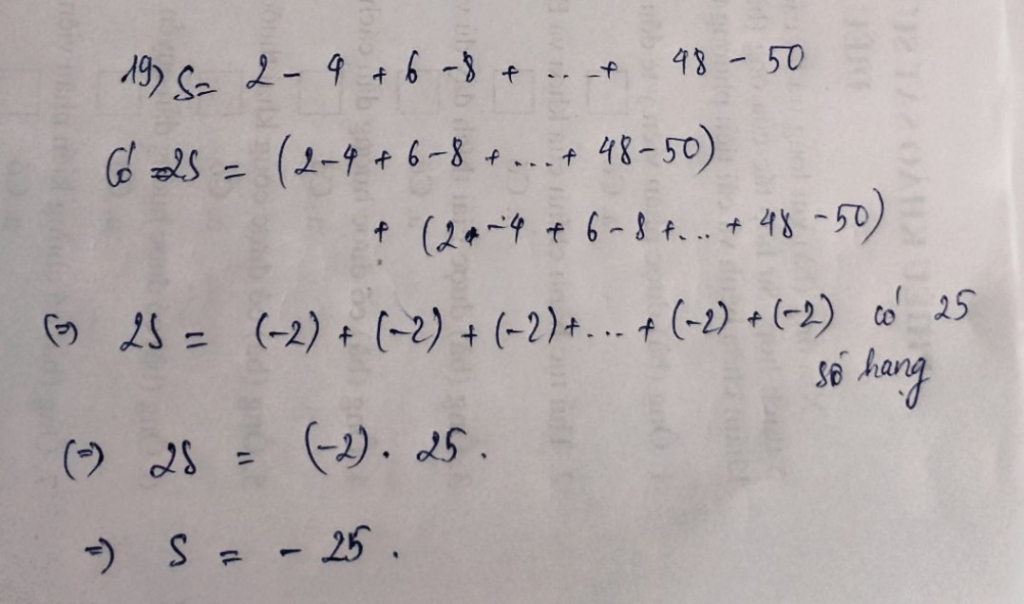 19) S = 2 - 4 + 6 - 8 + ... + 48 - 50
Có 2S = (2 - 4 + 6 - 8 + ... + 48 - 50)
+ (2 - 4 + 6 - 8 + ... + 48 - 50)
(=) 2S = (-2) + (-2) + (-2) + ... + (-2) + (-2) có 25
số hạng
(=) 2S = (-2) . 25 .
=) S = - 25 .